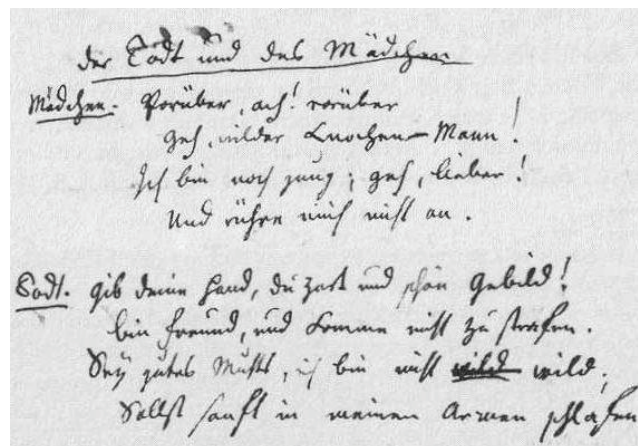 Der Todt und das Mädchen
Mädchen. Vorüber, ach! vorüber
geh, wilder Knochen-Mann!
Ich bin noch jung; geh, lieber!
Und rühre mich nicht an.
Todt. Gib deine Hand, du zart und schön Gebild!
bin Freund, und komme nicht zu strafen.
Sey gutes Muths, ich bin nicht wild wild,
Sollst sanft in meinen Armen schlafen